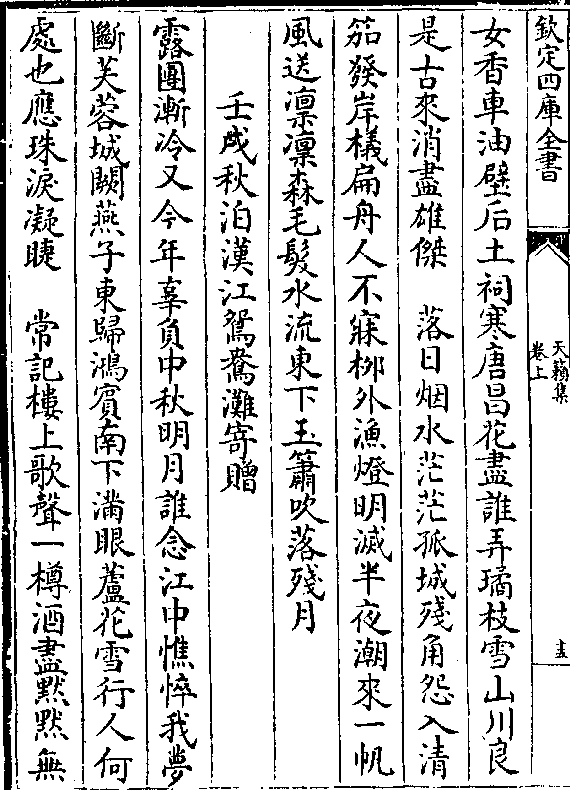 欽定四庫全書
天籟集
卷上
女香車油壁后土祠寒唐昌花盡誰弄璚枝雪山川良
是古來消盡雄傑　落日烟水茫茫孤城殘角怨入清
笳發岸檥扁舟人不寐栁外漁燈明滅半夜潮來一帆
風送凛凛森毛髮水流東下玉簫吹落殘月
壬戌秋泊漢江鴛鴦灘寄贈
露團漸冷又今年辜負中秋明月誰念江中憔悴我夢
斷芙蓉城闕燕子東歸鴻賓南下滿眼蘆花雪行人何
處也應珠淚凝睫　常記樓上歌聲一樽酒盡黙黙無